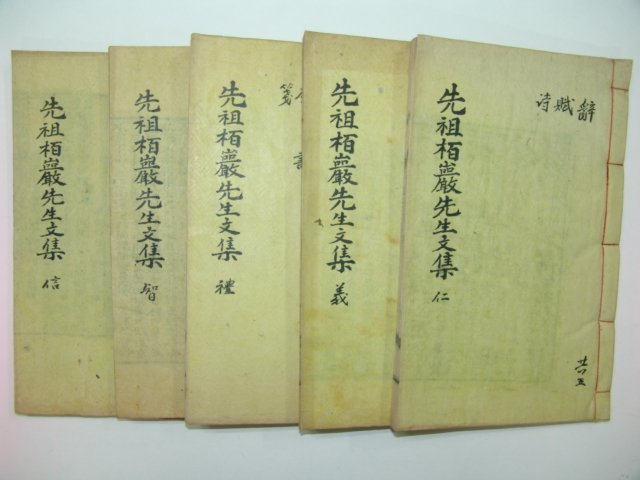 辭賦诗
先祖栢巖先生文集 仁
共五
先祖栢巖先生文集 義
先祖栢巖先生文集 禮
先祖栢巖先生文集 智
先祖栢巖先生文集 信